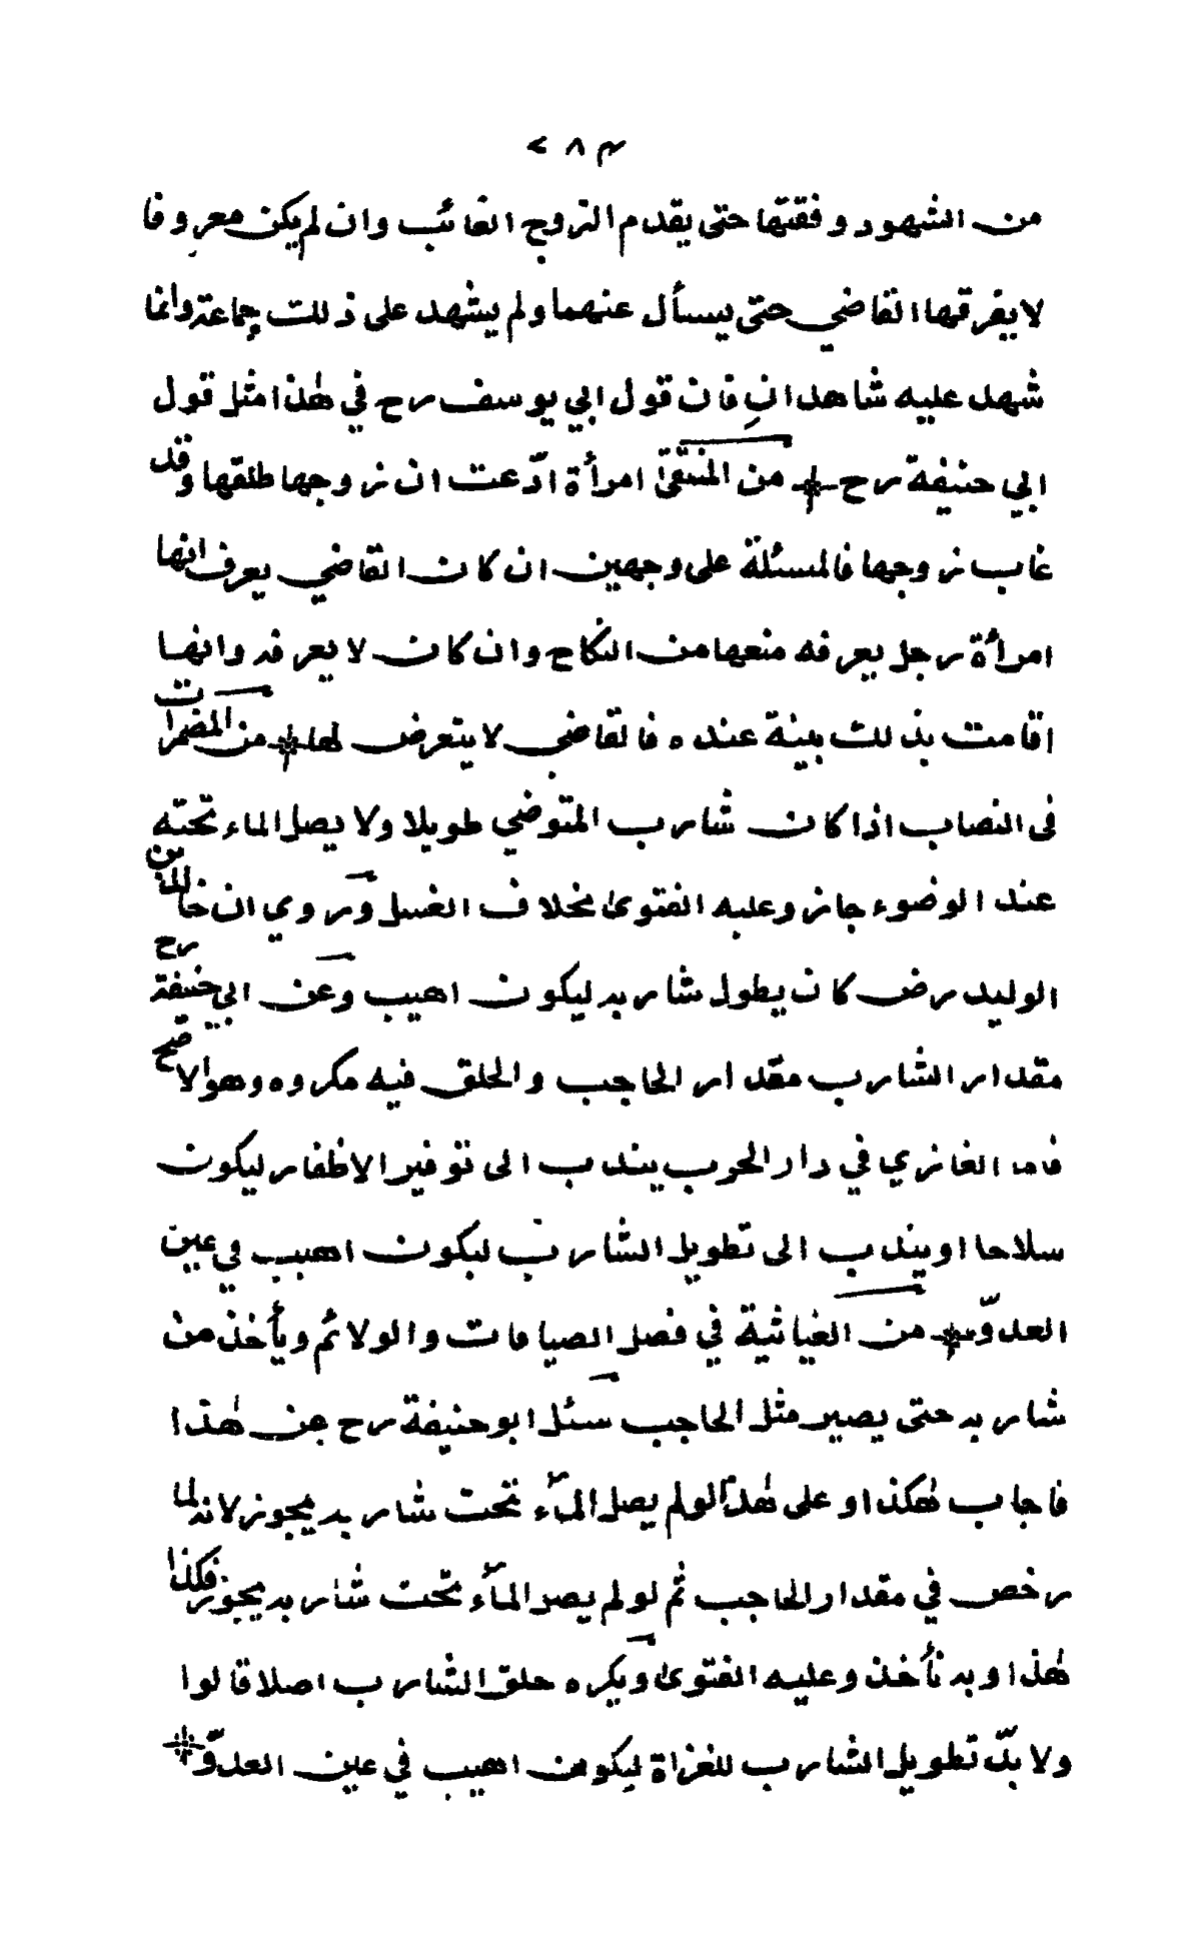 ٢٨٣
من الشهود وفقتها حتى يقدم الزوج الغائب وان لم يكن معروفا
لا يفرقها القاضي حتى يسأل عنهما ولم يشهد على ذلك جماعة وانما
شهد عليه شاهدان فان قول ابي يوسف رح في هٰذا مثل قول
ابي حنيفة رح من المنتقى امرأة ادّعت ان زوجها طلقها وقد
غاب زوجها فالمسئلة على وجهين ان كان القاضي يعرف انها
امرأة رجل يعرفه منعها من النكاح وان كان لا يعرفه وانها
اقامت بذلك بينة عنده فالقاضي لا يتعرض لها من المضمرات
فى النصاب اذا كان شارب المتوضي طويلا ولا يصل الماء تحته
عند الوضوء جاز وعليه الفتوى بخلاف الغسل وروي ان خالد بن
الوليد رض كان يطول شاربه ليكون اهيب وعن ابي حنيفة رح
مقدار الشارب مقدار الحاجب والحلق فيه مكروه وهو الاصح
فاما الغازي في دار الحرب يندب الى توفير الاظفار ليكون
سلاحا او يندب الى تطويل الشارب ليكون اهيب في عين
العدوّ من الغياثية في فصل الضيافات والولائم ويأخذ من
شاربه حتى يصير مثل الحاجب سئل ابو حنيفة رح عن هٰذا
فاجاب هٰكذا وعلى هٰذا لو لم يصل المآء تحت شاربه يجوز لانه لما
رخص في مقدار الحاجب ثم لو لم يصل المآء تحت شاربه يجوز فكذا
هٰذا وبه نأخذ وعليه الفتوى ويكره حلق الشارب اصلا قالوا
ولا بدّ تطويل الشارب للغزاة ليكون اهيب في عين العدوّ